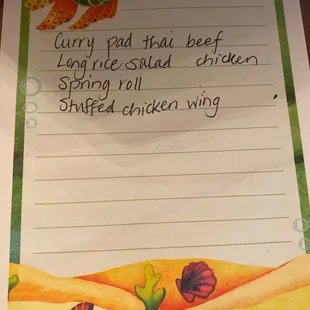 Curry pad thai beef
Long rice salad chicken
Spring roll
Stuffed chicken wing